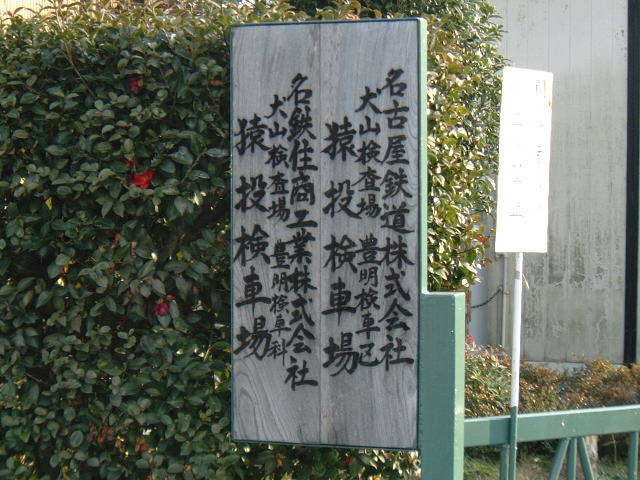 名古屋鉄道株式会社
犬山検査場 豊明検車区
猿投検車場
名鉄住商工業株式会社
犬山検査場 豊明検車科
猿投検車場